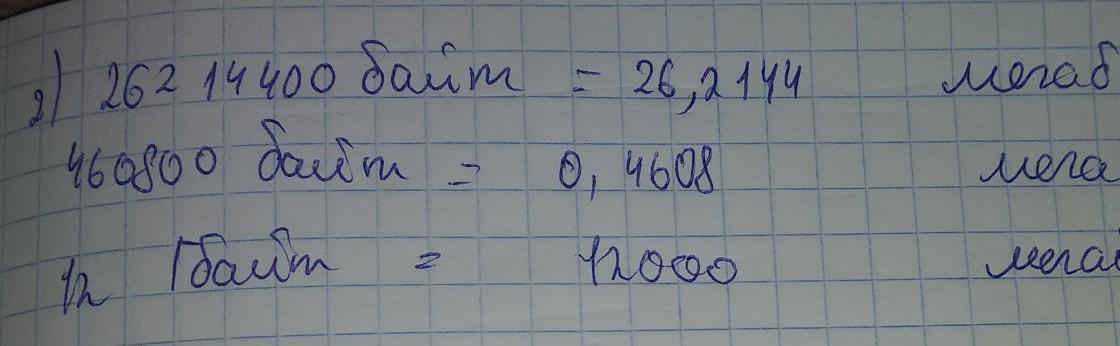 2) 26214400 байт = 26,2144 мегаб
460800 байт = 0,4608 мега
12 Гбайт = 12000 мегаб